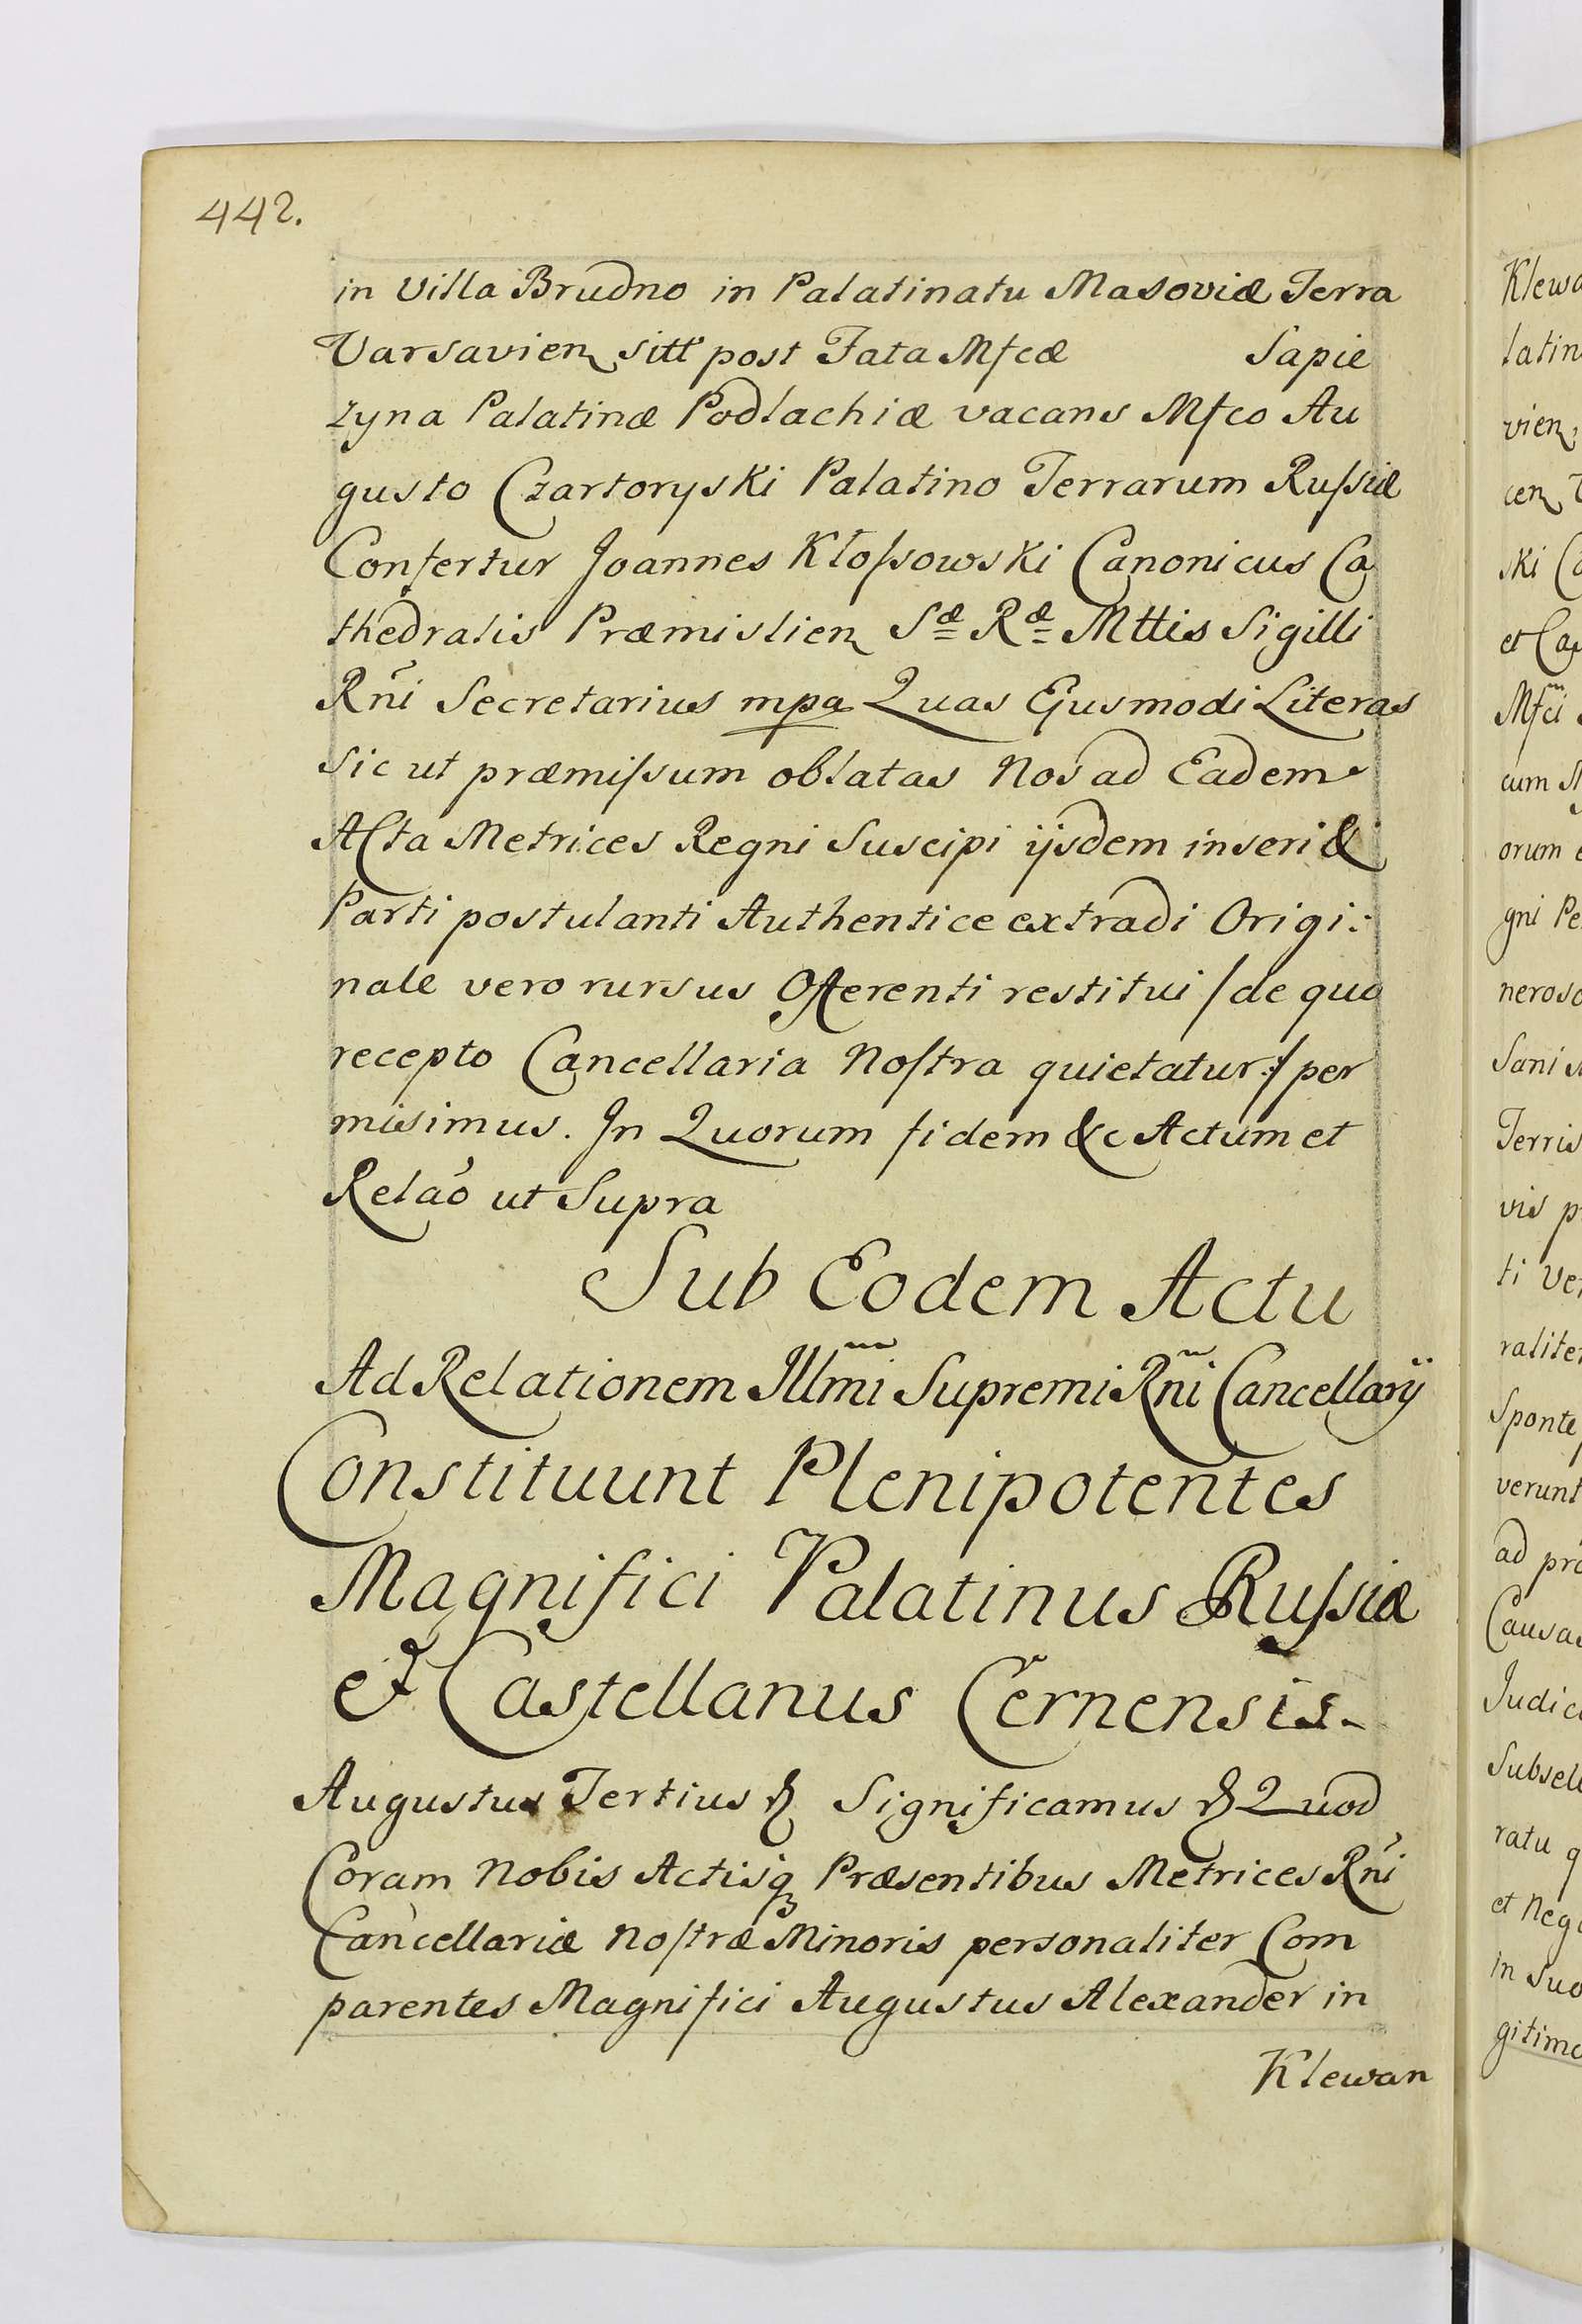 442.
in Villa Brudno in Palatinatu Masoviæ Terra
Varsavien sitt post Fata Mfcæ Sapie
zyna Palatinæ Podlachiæ vacans Mfco Au
gusto Czartoryski Palatino Terrarum Russiæ
Confertur Joannes Kłossowski Canonicus Ca
thedralis Præmislien Sæ Ræ Mttis Sigilli
Rñi Secretarius mpa Quas Ejusmodi Literas
Sic ut præmissum oblatas Nos ad Eadem
Acta Metrices Regni Suscipi ijsdem inseri &
Parti postulanti Authentice extradi Origi:
nale vero rursus Offerenti restitui /de quo
recepto Cancellaria Nostra quietatur:/ per
misimus. In Quorum fidem &c Actum et
Relaõ ut Supra
Sub Eodem Actu
Ad Relationem Illmi Supremi Rñi Cancellarij
Constituunt Plenipotentes
Magnifici Palatinus Russiæ
et Castellanus Cernensis
Augustus Tertius & Significamus & Quod
Coram Nobis Actisq Præsentibus Metrices Rñi
Cancellariæ Nostræ Minoris personaliter Com
parentes Magnifici Augustus Alexander in
Klewan
Klewa
latin
vien,
cen
ski
et Ca
Mfci
cum
orum
gni Pe
neroso
Sani
Terris
vis p
ti Ve
ralite
Sponte
verunt
ad præ
Causas
Judic
Subsel
ratu q
et Neg
in Suo
gitime